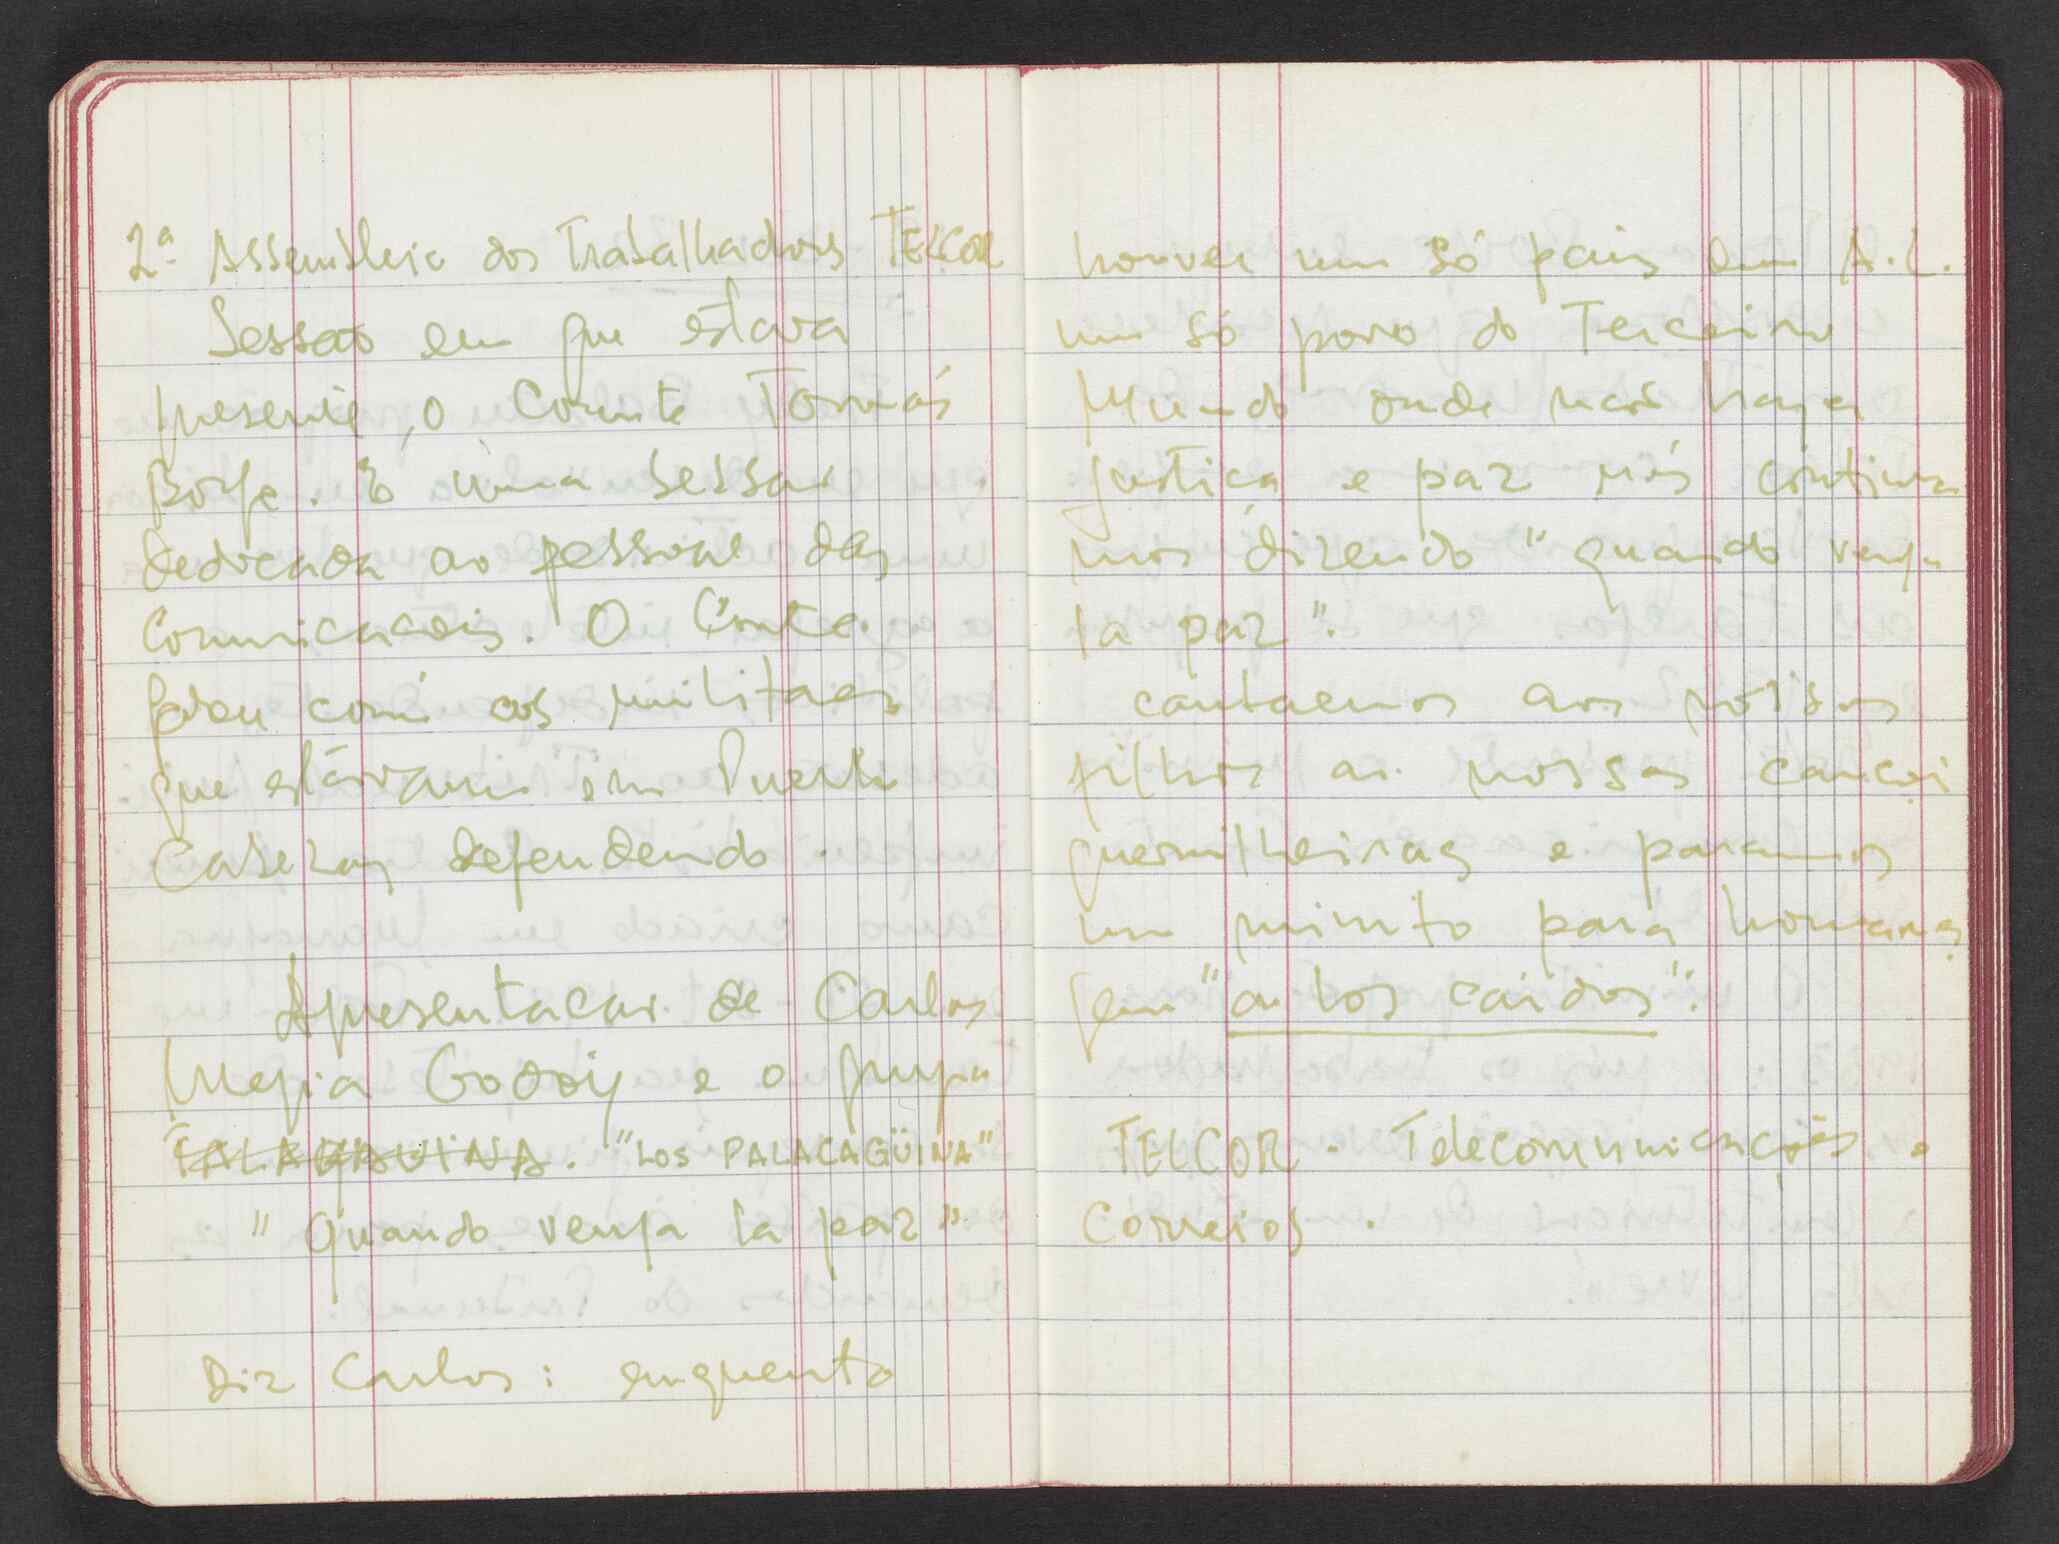 2ª Assembleia dos Trabalhadores TELCOR
Sessão em que estava
presente, o Comte Tomás
Borge. É uma sessão
dedicada ao pessoal das
Comunicacões. O Comte.
falou com os militares
que estavam em Puerto
Cabezas defendendo
Apresentacão de Carlos
Mejia Godoy e o grupo
"LOS PALACAGÜINA"
"Quando venga la paz".
Diz Carlos: enquento
houver um só pais em A.L.
um só povo do Terceiro
Mundo onde nao haja
justica e paz nós continua
mos dizendo "quando venga
la paz".
cantaemos aos nossos
filhos as nossas cancoi
guerrilheiras e paramos
um minito para homena
gem "a los caidos".
TELCOR. Telecomunicações e
Correios.